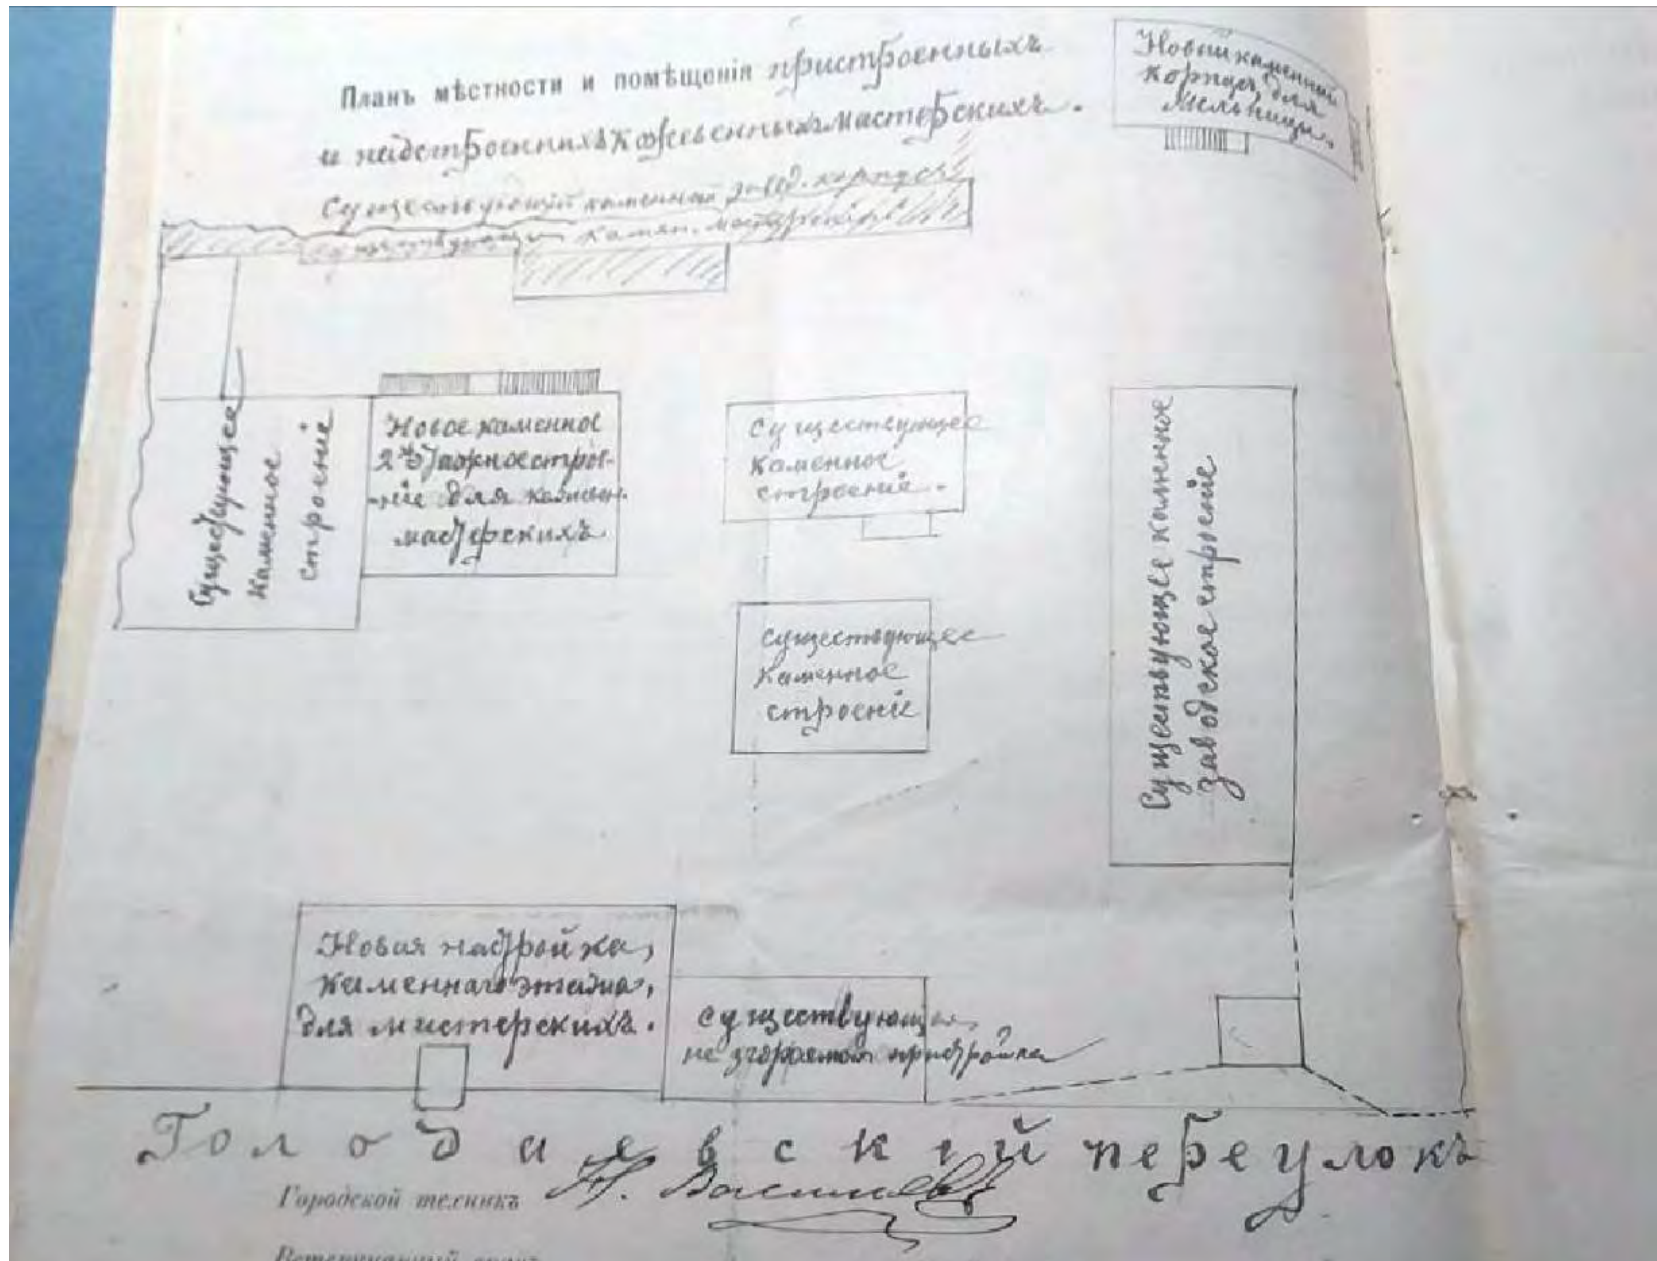 Планъ мѣстности и помѣщенія пристроенныхъ
и надстроенныхъ кожевенныхъ мастерскихъ.
Новый каменный
корпусъ для
мельницы.
Существующій каменный завод. корпусъ
существующая камен. мастерскія
Существующее
каменное
строеніе
Новое каменное
2хъ этажное строе-
-ніе для кожевен.
мастерскихъ
Существующее
каменное
строеніе.
Существующее каменное
заводское строеніе
существующее
каменное
строеніе
Новая надстройка,
каменнаго этажа,
для мастерскихъ.
Существующая
не згораемая пристройка
Голодаевскій переулокъ
Городской техникъ Васильевъ
Ветеринарный врачъ